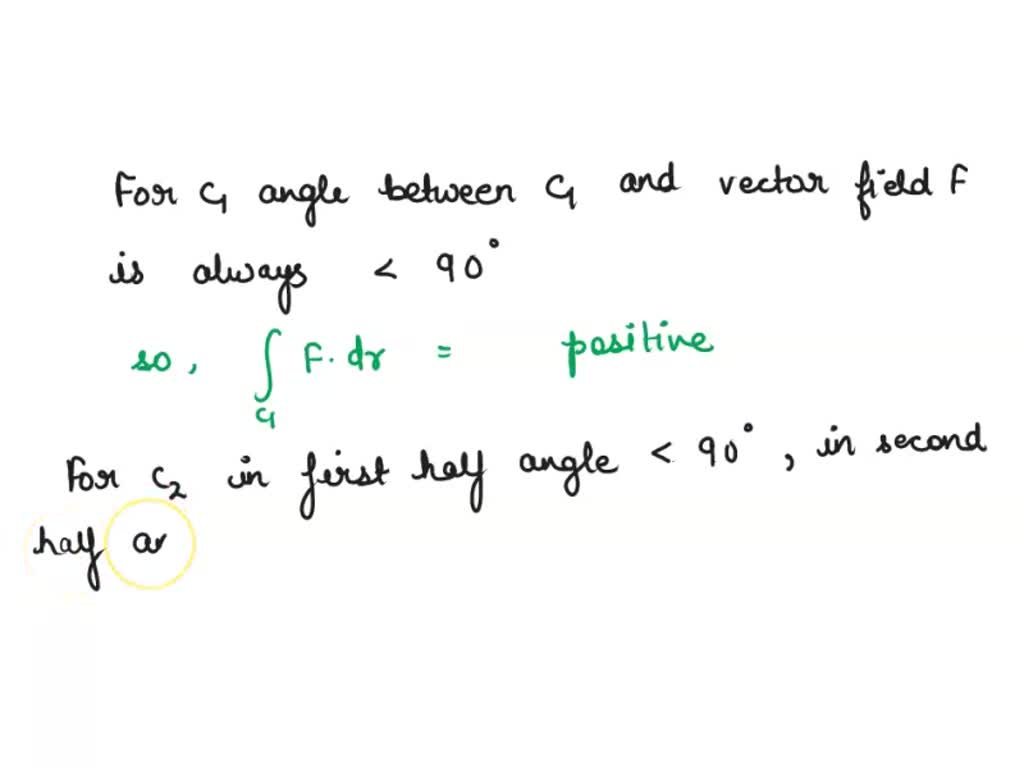 For C₁ angle between C₁ and vector field F
is always < 90°
so, ∫ F. dr = positive
C₁
For C₂ in first half angle < 90°, in second
half an